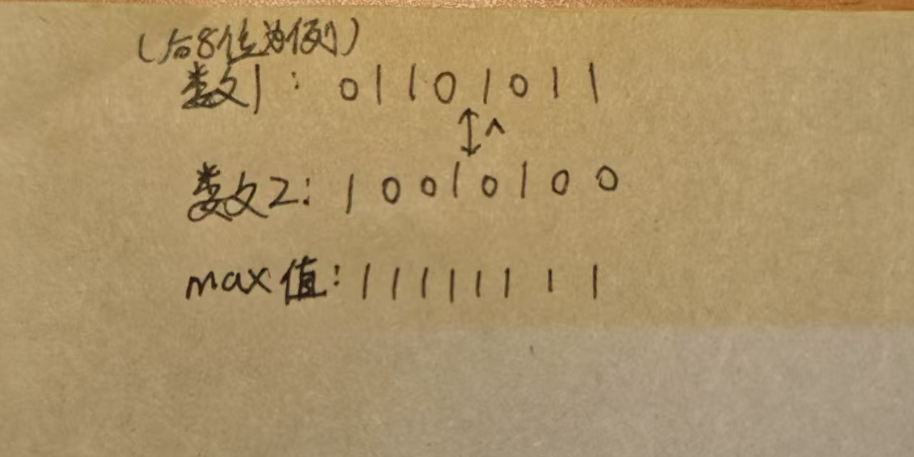 (后8位为例)
数1: 01101011
^
数2: 10010100
max值: 11111111